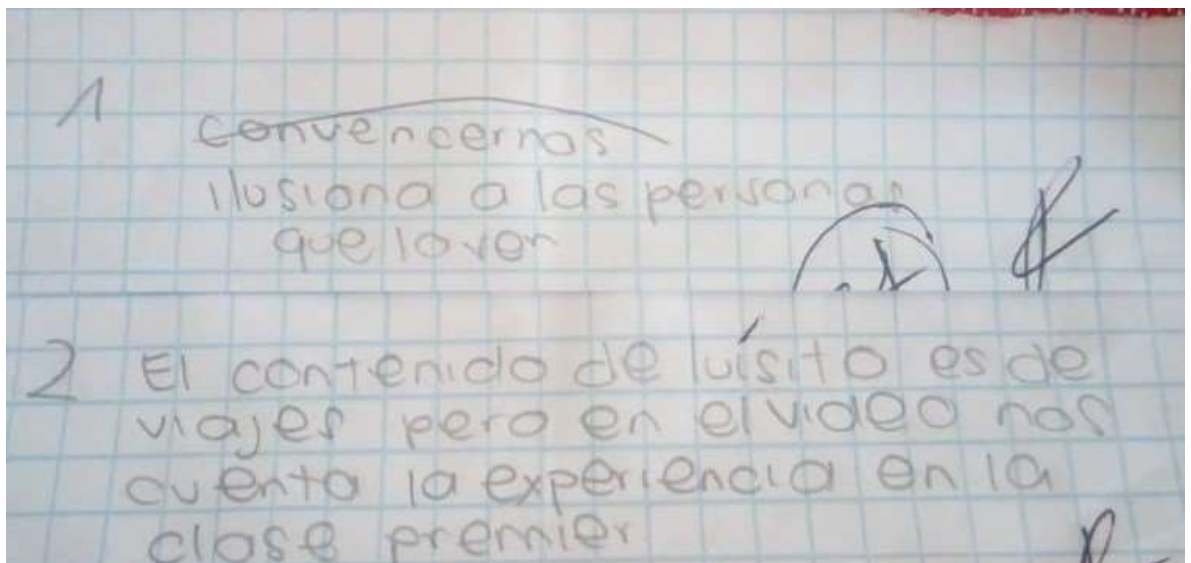 1
convencernos
ilusiona a las personas
que lo ven
2 El contenido de luísito es de
viajes pero en el video nos
cuenta la experiencia en la
clase premier